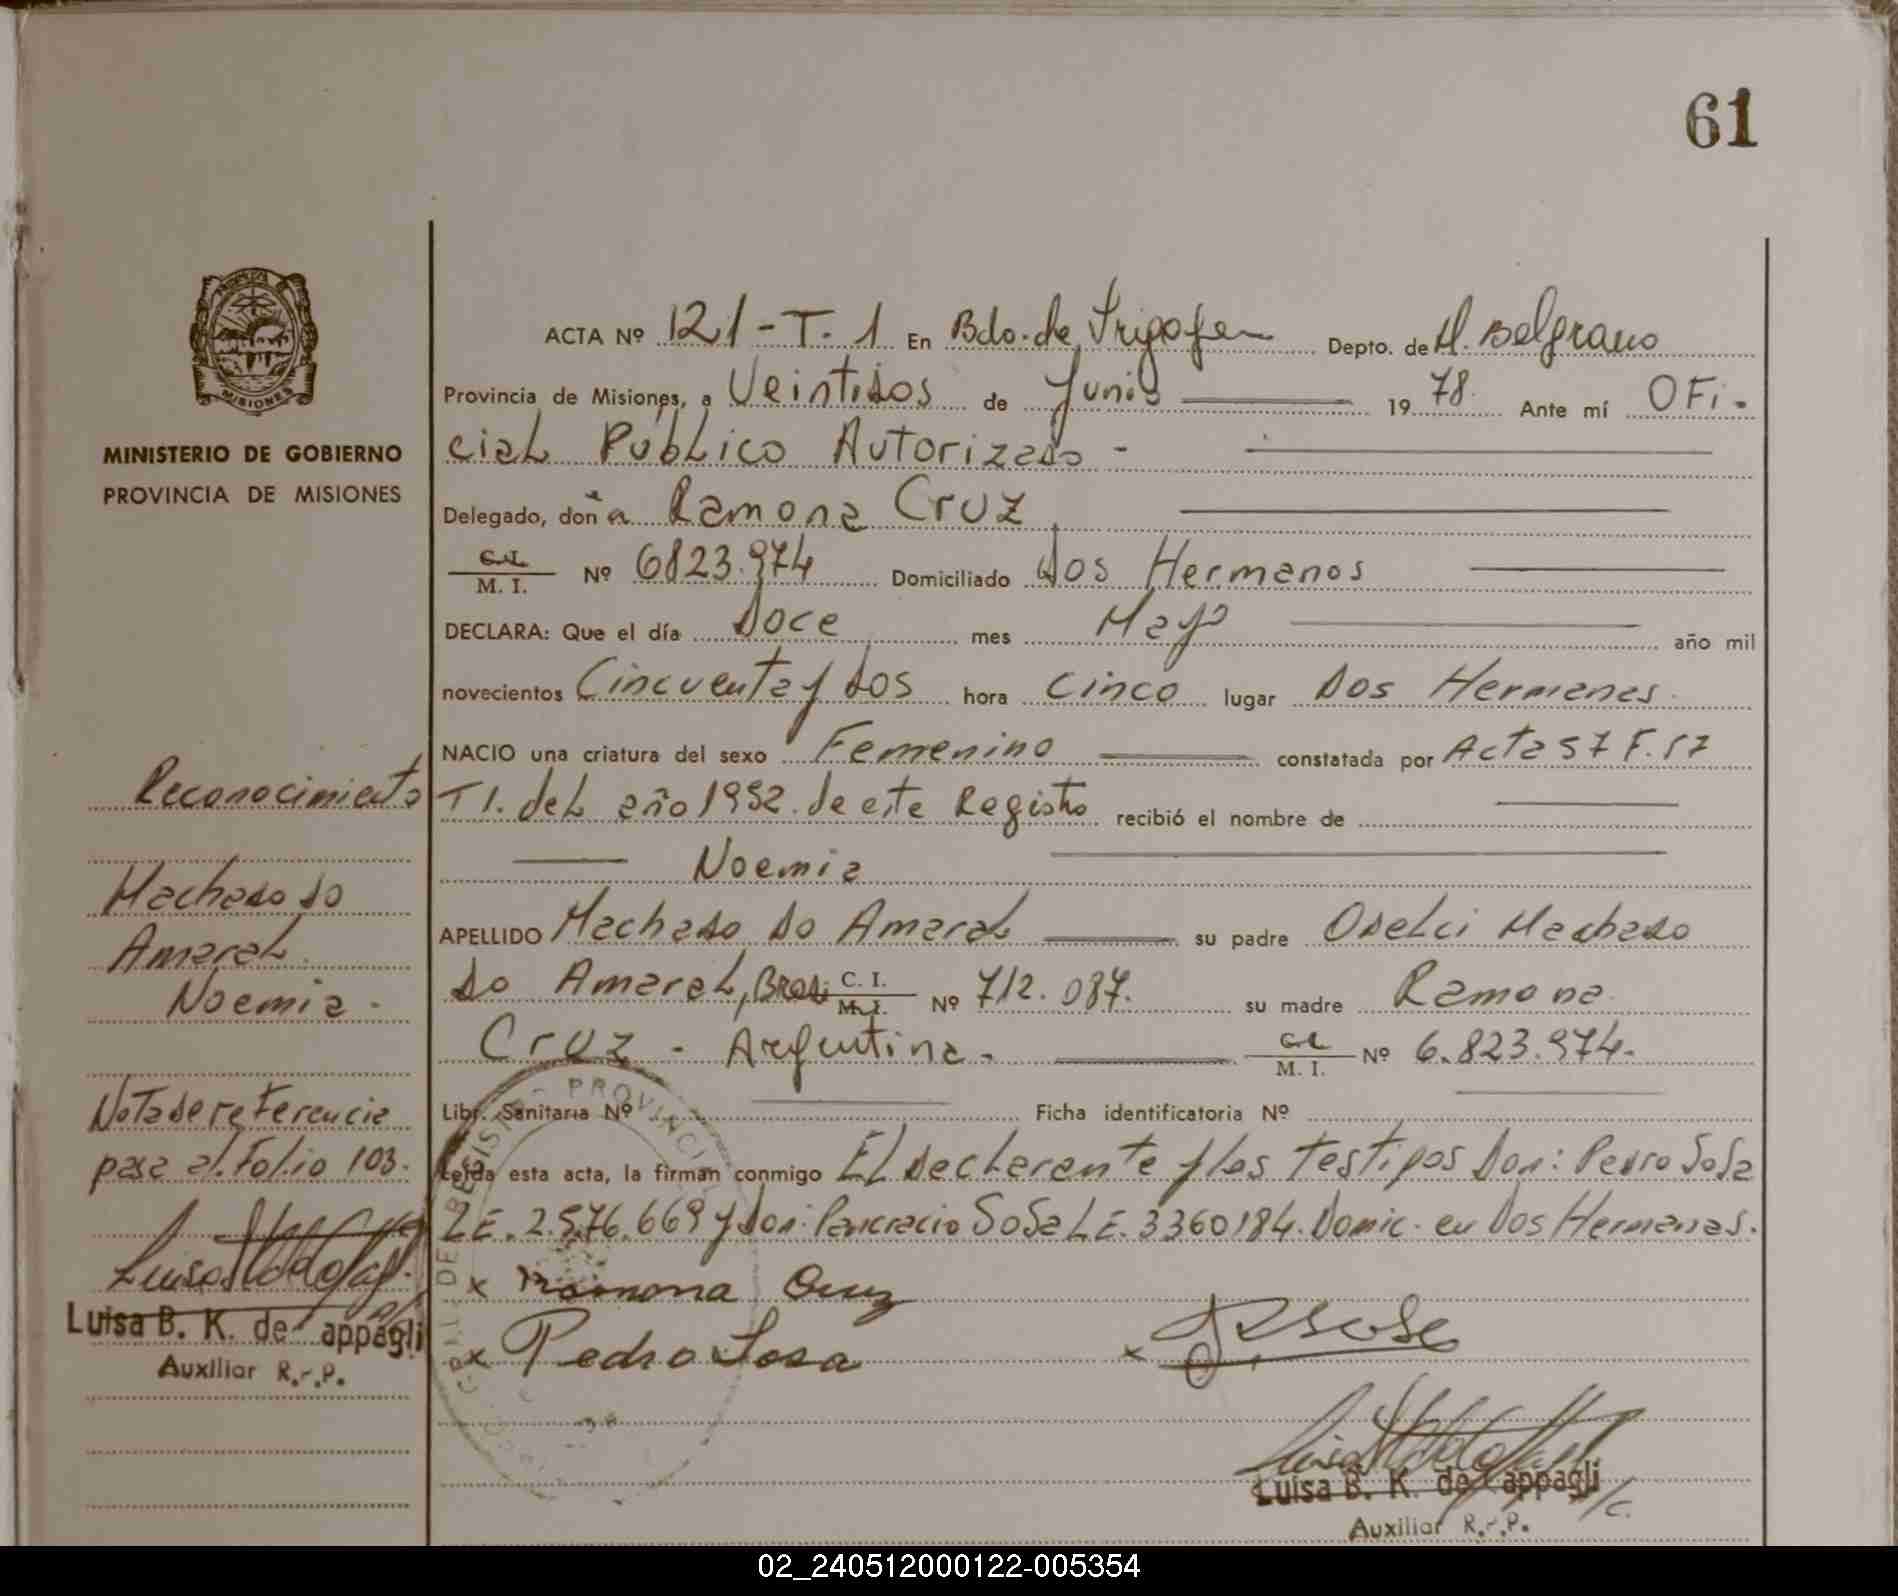 61
MISIONES
MINISTERIO DE GOBIERNO
PROVINCIA DE MISIONES
Reconocimiento
Machado do
Amaral
Noemia -
Nota de referencia
pasa al Folio 103.
Luisa B. K. de Cappagli
Auxiliar R.-.P.
ACTA Nº 121 - T. 1 En Bdo. de Irigoyen Depto. de M. Belgrano
Provincia de Misiones, a Veintidos de Junio 1978. Ante mí OFi-
cial Público Autorizado -
Delegado, doña Ramona Cruz
C.I. M. I. Nº 6823.974 Domiciliado Dos Hermanos
DECLARA: Que el día Doce mes Mayo año mil
novecientos Cincuenta y dos hora Cinco lugar Dos Hermanas.
NACIO una criatura del sexo Femenino constatada por Acta 57 F. 57
T 1. del año 1952. de este Registro recibió el nombre de
Noemia
APELLIDO Machado do Amaral su padre Odelci Machado
do Amaral, Bras. C. I. M. I. Nº 712.087. su madre Ramona
Cruz - Argentina. C.I. M. I. Nº 6.823.974.
Libr. Sanitaria Nº Ficha identificatoria Nº
Leída esta acta, la firman conmigo El declarante y los testigos Don: Pedro Sosa
L.E. 2.576.669 y Don: Pancracio Sosa L.E. 3360184. Domic. en Dos Hermanas.
x Ramona Cruz
x Pedro Sosa x
Luisa B. K. de Cappagli
Auxiliar R.-.P.
02_240512000122-005354